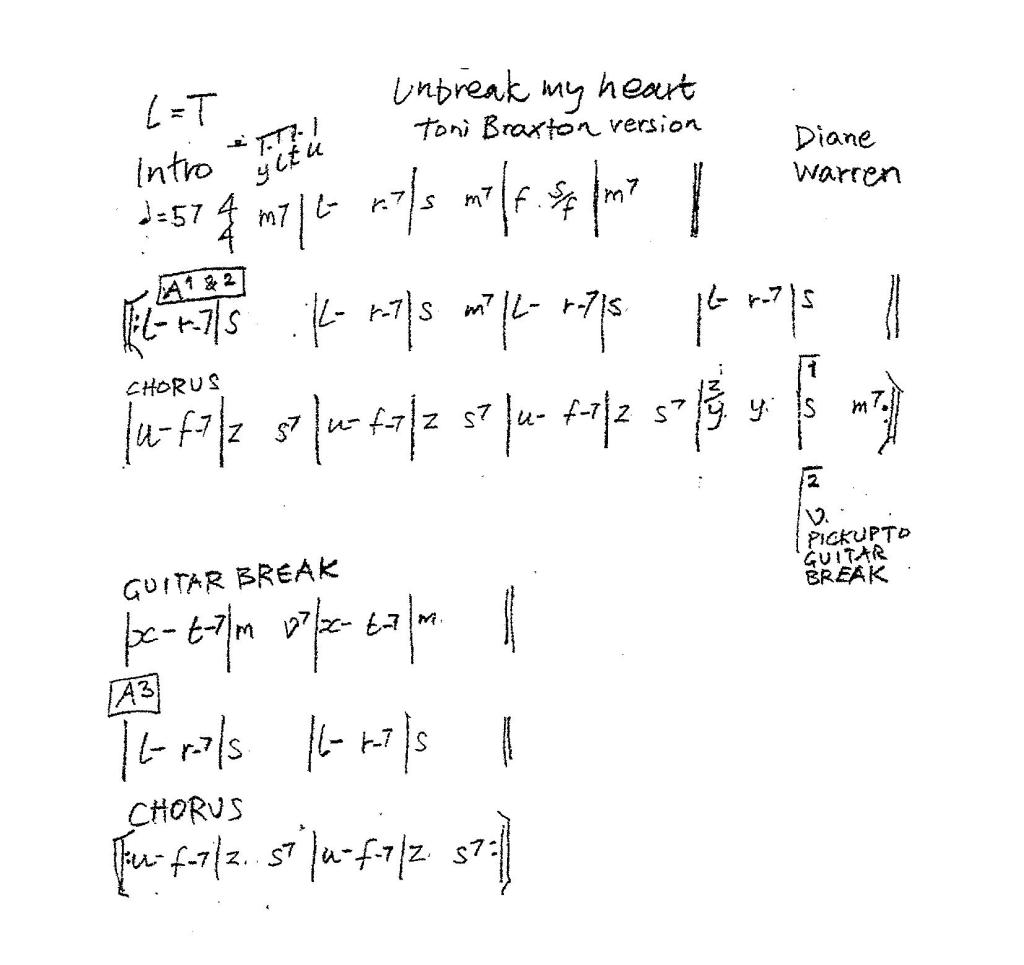 Unbreak my heart
L=T
Toni Braxton version
Diane
Warren
Intro
♩=57 4/4 m7 | L- r-7 | s m7 | f s/f | m7 ||
A1 & 2
||: L- r-7 | s | L- r-7 | s m7 | L- r-7 | s | L- r-7 | s ||
CHORUS
| u- f-7 | z s7 | u- f-7 | z s7 | u- f-7 | z s7 | z/y y | 1 s m7 :||
2
v.
PICKUP TO
GUITAR
BREAK
GUITAR BREAK
| x- t-7 | m v7 | x- t-7 | m ||
A3
| L- r-7 | s | L- r-7 | s ||
CHORUS
||: u- f-7 | z s7 | u- f-7 | z s7 :||